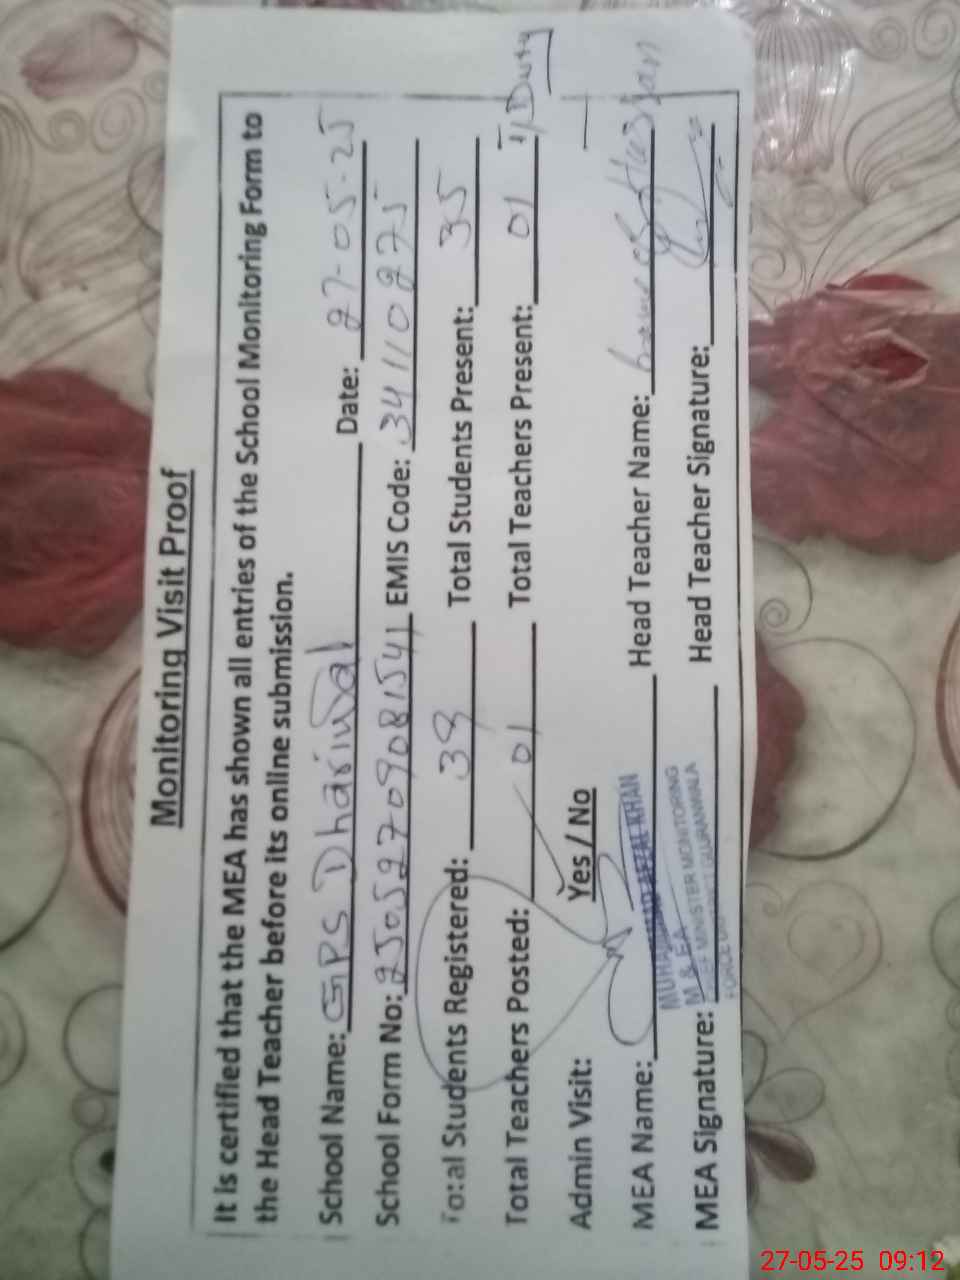 Monitoring Visit Proof
It is certified that the MEA has shown all entries of the School Monitoring Form to
the Head Teacher before its online submission.
School Name: GPS Dhariwal Date: 27-05-25
School Form No: 25052709081541 EMIS Code: 34110275
Total Students Registered: 39 Total Students Present: 35
Total Teachers Posted: 01 Total Teachers Present: 01 Duty
Admin Visit: Yes / No
MEA Name: AFZAL KHAN Head Teacher Name: Hassan
M & EA
MEA Signature: CHIEF MINISTER MONITORING Head Teacher Signature:
FORCE DISTRICT GUJRANWALA
27-05-25 09:12